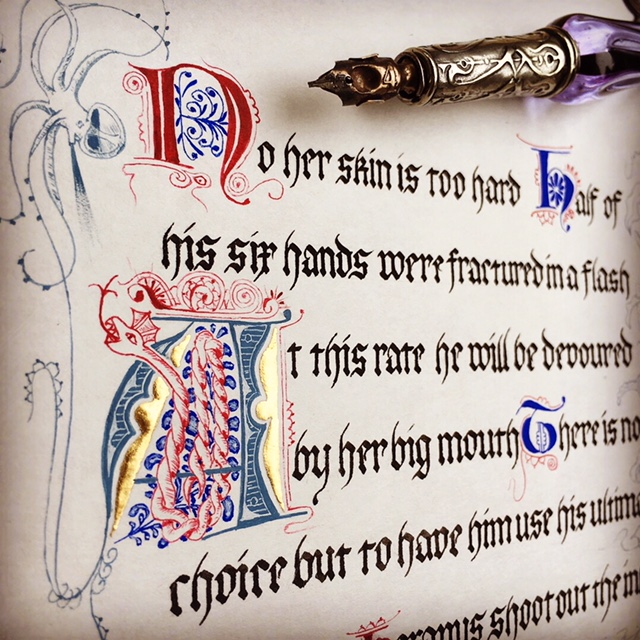 No her skin is too hard Half of
his six hands were fractured in a flash
At this rate he will be devoured
by her big mouth There is no
choice but to have him use his
shoot out the